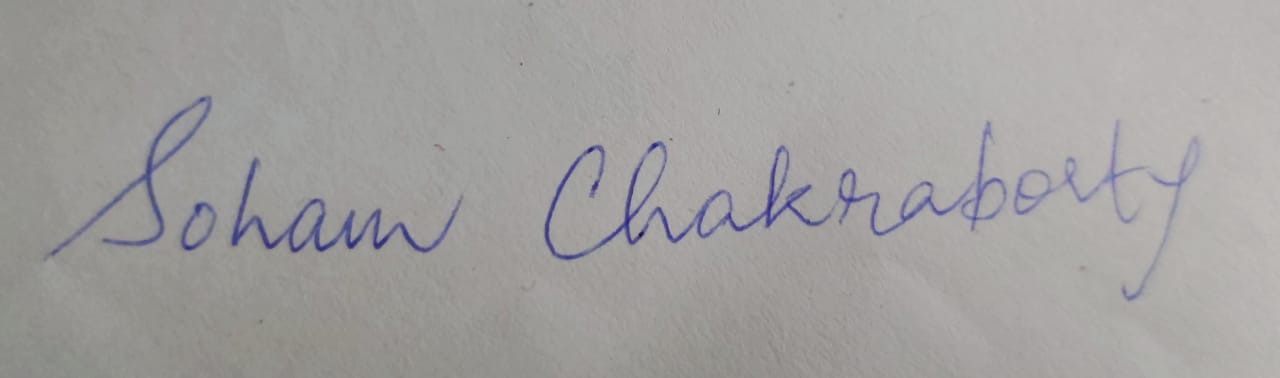 Soham Chakraborty